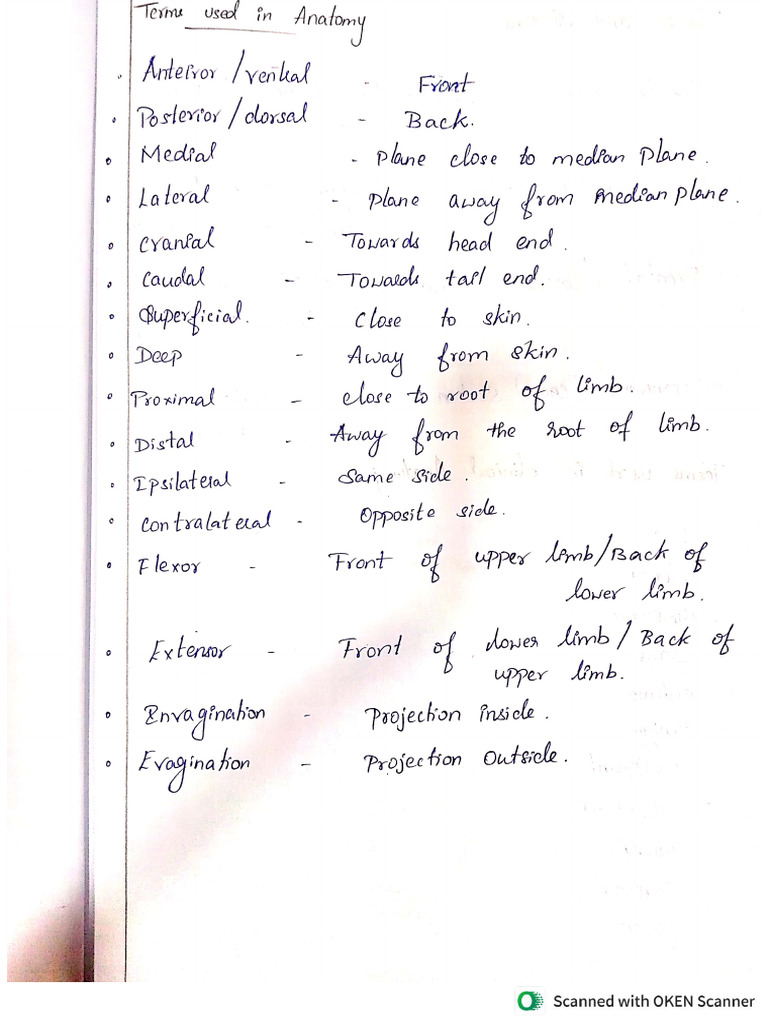 Terms used in Anatomy
• Anterior/ventral - Front
• Posterior/dorsal - Back.
• Medial - Plane close to median plane.
• Lateral - Plane away from median plane.
• Cranial - Towards head end.
• Caudal - Towards tail end.
• Superficial. - Close to skin.
• Deep - Away from skin.
• Proximal - close to root of limb.
• Distal - Away from the root of limb.
• Ipsilateral - Same side.
• Contralateral - Opposite side.
• Flexor - Front of upper limb/Back of
lower limb.
• Extensor - Front of lower limb/Back of
upper limb.
• Invagination - Projection inside.
• Evagination - Projection Outside.
Scanned with OKEN Scanner